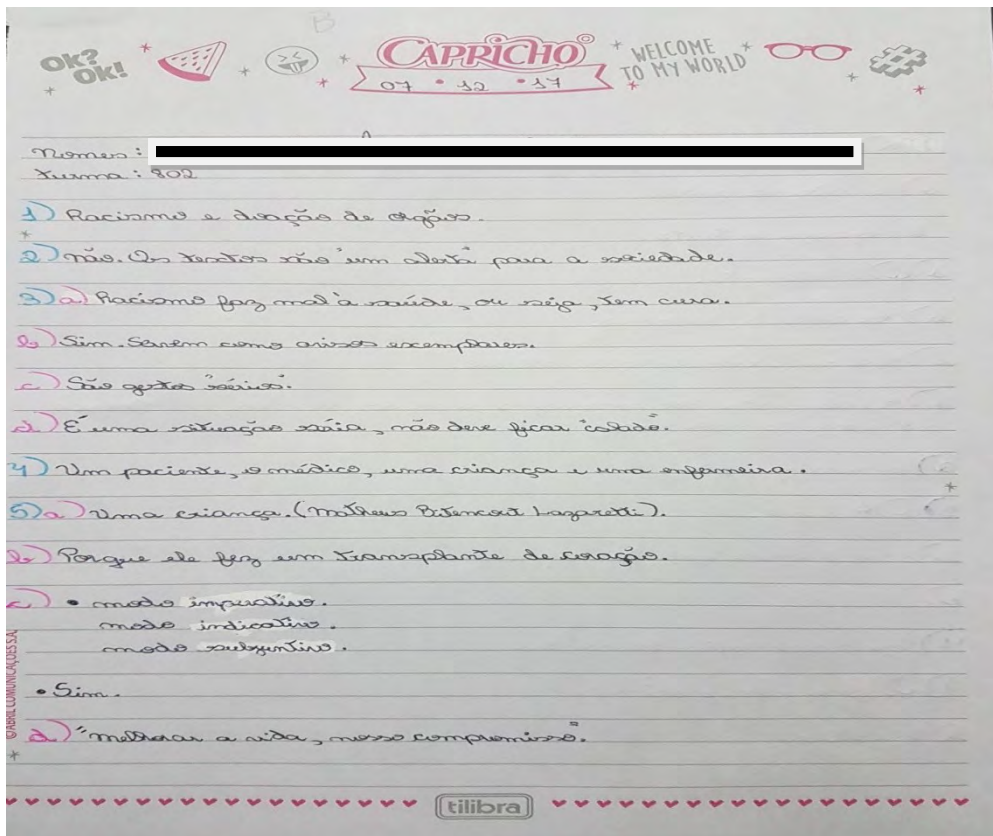 Ok?
Ok!
TIP
CAPRICHO
WELCOME
TO MY WORLD
#
07 • 12 • 17
Nomes:
Turma: 802
1) Racismo e doação de orgãos.
2) Não. Os textos são "um alerta" para a sociedade.
3) a) Racismo faz mal à saúde, ou seja, tem cura.
b) Sim. Servem como avisos exemplares.
c) São gestos "sérios".
d) É uma situação séria, não deve ficar "calado".
4) Um paciente, o médico, uma criança e uma enfermeira.
5) a) Uma criança. (Matheus Bitencourt Lazaretti).
b) Porque ele fez um transplante de coração.
c) • modo imperativo.
modo indicativo.
modo subjuntivo.
• Sim.
d) "melhorar a vida, nosso compromisso."
©ABRIL COMUNICAÇÕES S.A.
tilibra